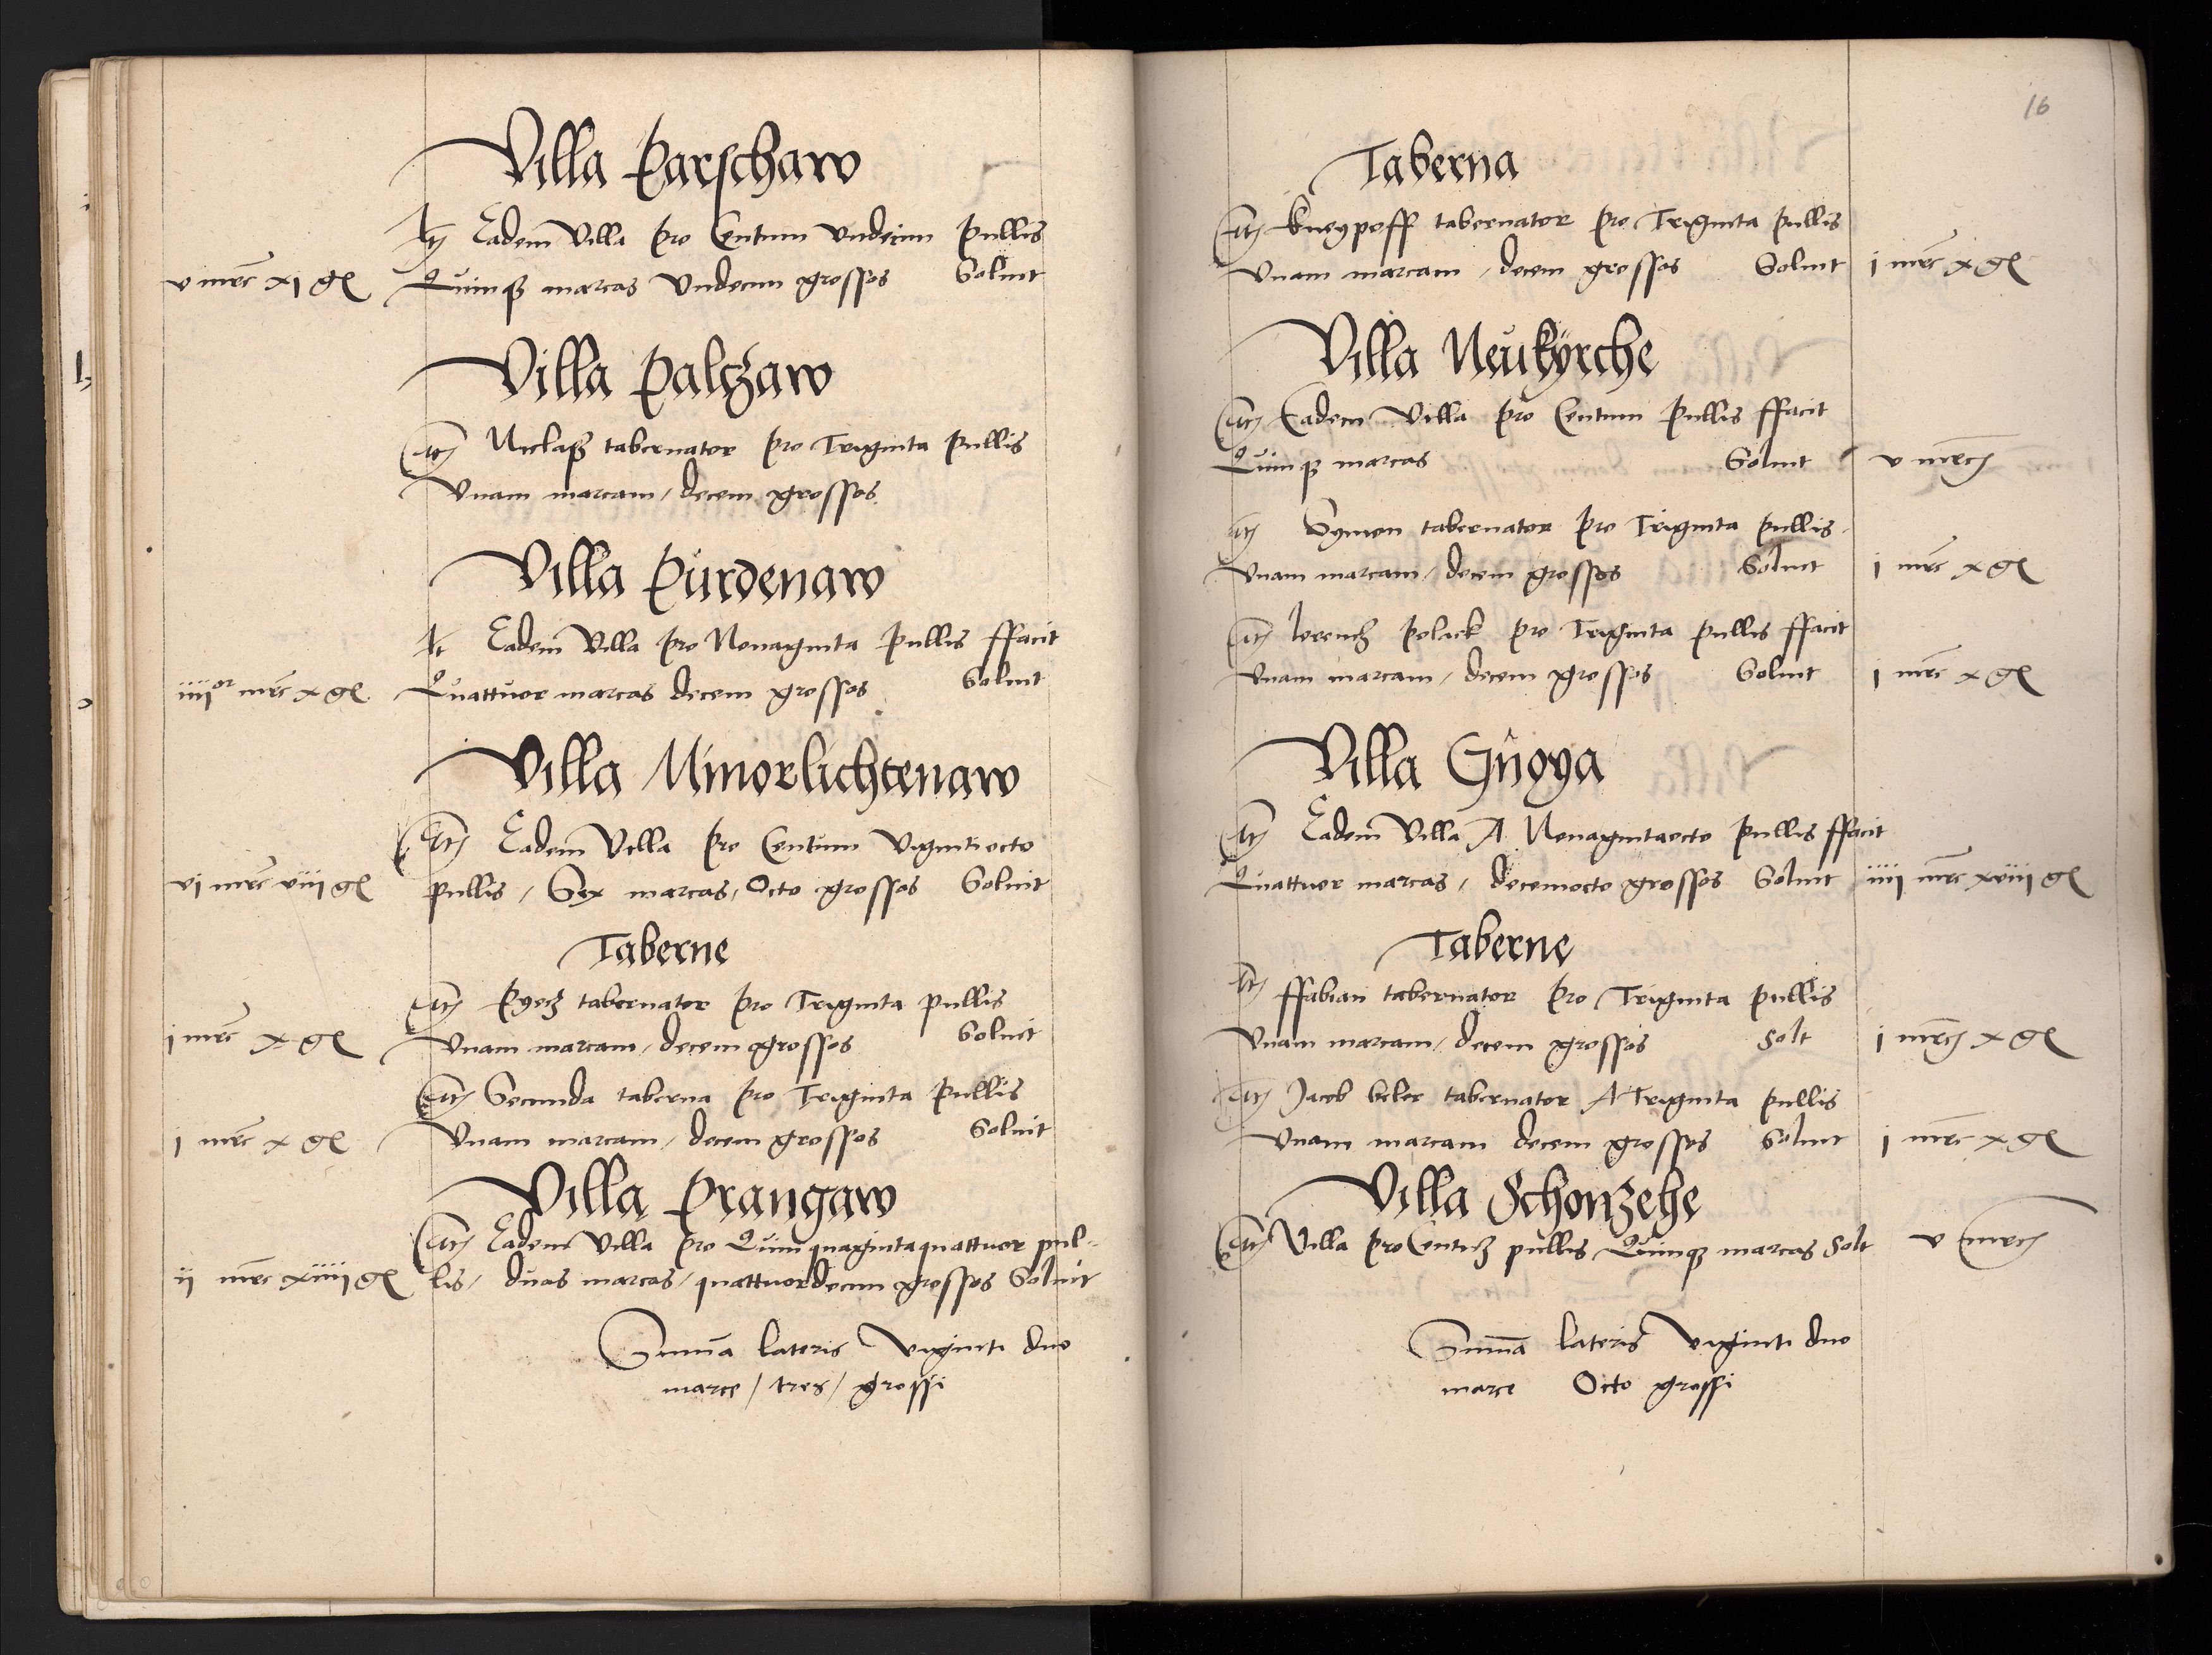 Villa Parschaw
It Eadem Villa pro Centum vndecim pullis
v mrc xi gr Quinqꝫ marcas Vndecim grossos Soluit
Villa Palczaw
Itꝫ Niclaß tabernator pro Triginta pullis
Vnam marcam / decem grossos
Villa Pŭrdenaw
It Eadem Villa pro Nonaginta pullis ffacit
iiiior mrc x gr Quattuor marcas decem grossos Soluit
Villa Minorlichtenaw
Itꝫ Eadem Villa pro Centum Vigintiocto
vi mrc viii gr pullis / Sex marcas / Octo grossos Soluit
Taberne
Itꝫ tabernator pro Triginta pullis
i mrc x gr Vnam marcam / decem grossos Soluit
Itꝫ Secunda taberna pro Triginta pullis
i mrc x gr Vnam marcam / decem grossos Soluit
Villa Prangaw
Itꝫ Eadem Villa pro Quinquagintaquattuor pul-
ii mrc xiiii gr lis / duas marcas / quattuordecim grossos Soluit
Summa lateris viginti duo
marce / tres / grossi
16
Taberna
Itꝫ Kneypoff tabernator pro Triginta pullis
Vnam marcam / decem grossos Soluit i mrc x gr
Villa Neŭkÿrche
Itꝫ Eadem Villa pro Centum pullis ffacit
Quinqꝫ marcas Soluit v mrc
Itꝫ Symon tabernator pro Triginta pullis
Vnam marcam / decem grossos Soluit i mrc x gr
Itꝫ lorencz polack pro Triginta pullis ffacit
Vnam marcam / decem grossos Soluit i mrc x gr
Villa Gnoya
Itꝫ Eadem Villa A Nonagintaocto pullis ffacit
Quattuor marcas / decemocto grossos Soluit iiii mrc xviii gr
Taberne
Itꝫ ffabian tabernator pro Triginta pullis
Vnam marcam / decem grossos Solt i mrc x gr
Itꝫ Jacob tabernator A Triginta pullis
Vnam marcam decem grossos Soluit i mrc x gr
Villa Schonzehe
Itꝫ Villa pro Centuꝫ pullis Quinqꝫ marcas Solt v mrc
Summa lateris viginti duo
marce Octo grossi